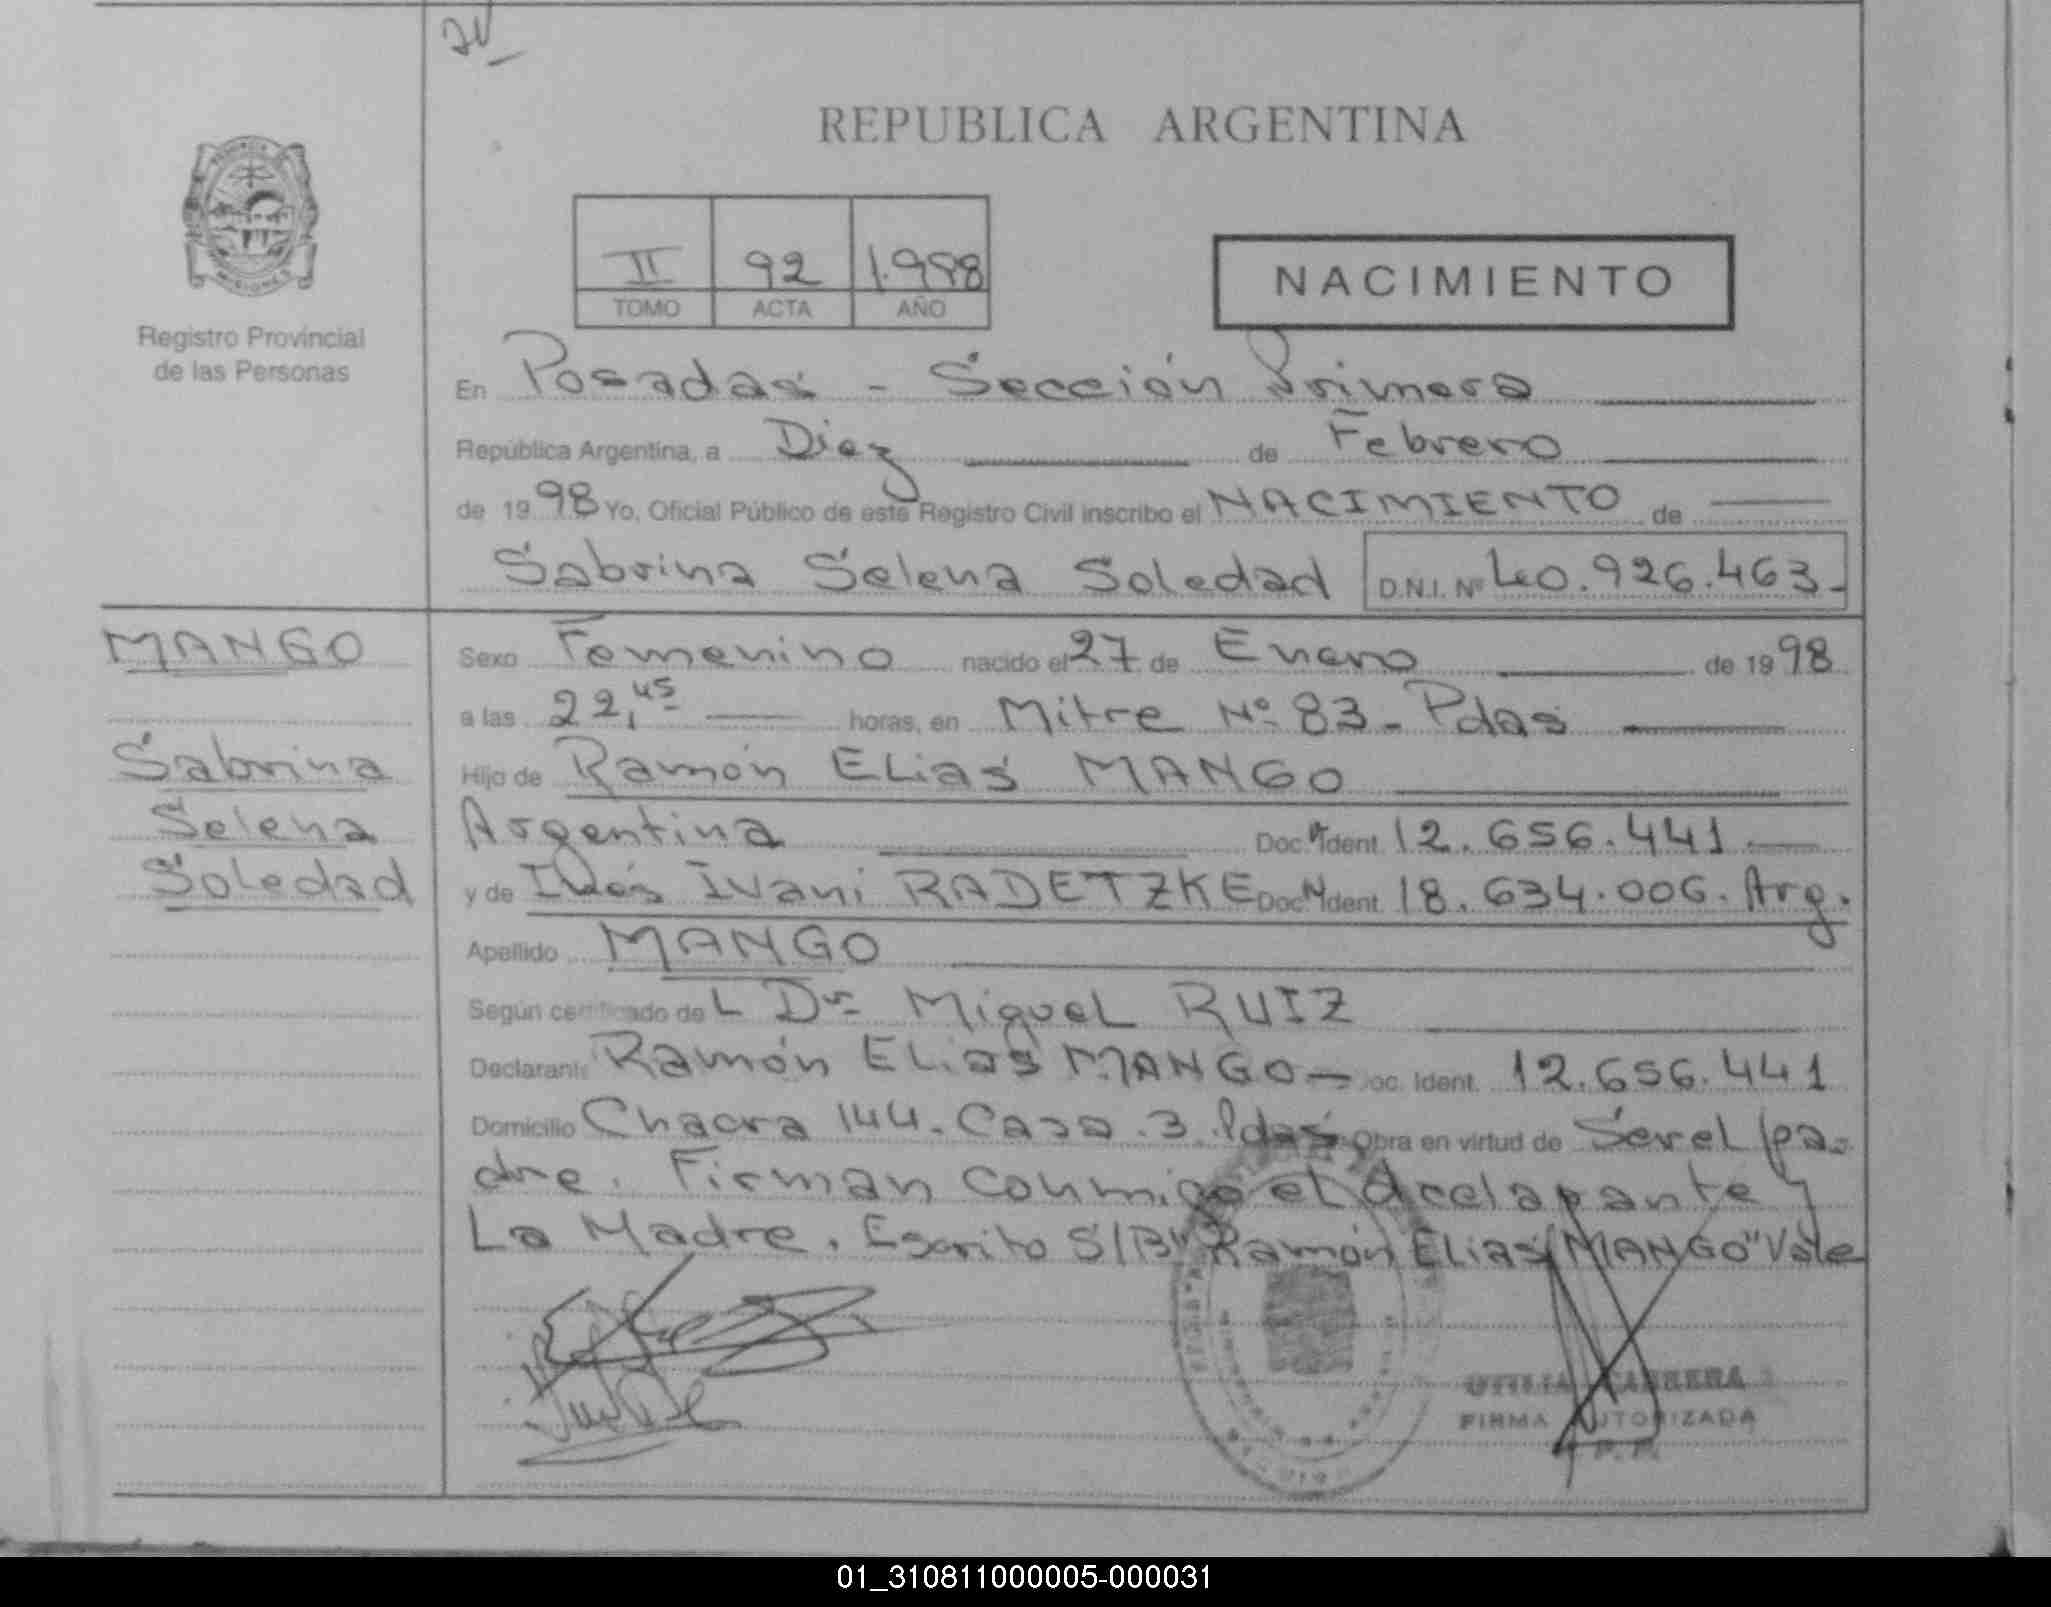 REPUBLICA ARGENTINA
PROVINCIA DE
MISIONES
Registro Provincial
de las Personas
II 92 1.998
TOMO ACTA AÑO
NACIMIENTO
En Posadas - Sección Primera
República Argentina, a Diez de Febrero
de 1998 Yo, Oficial Público de este Registro Civil inscribo el NACIMIENTO de
Sabrina Selena Soledad D.N.I. Nº 40.926.463.-
MANGO
Sabrina
Selena
Soledad
Sexo Femenino nacido el 27 de Enero de 1998
a las 22,45 horas, en Mitre Nº 83 - Pdas
Hijo de Ramón Elias MANGO
Argentina Doc. Ident. 12.656.441
y de Inés Ivani RADETZKE Doc. Ident. 18.634.006. Arg.
Apellido MANGO
Según certificado del Dr Miguel RUIZ
Declarante Ramón Elias MANGO - Doc. Ident. 12.656.441
Domicilio Chacra 144. Casa. 3. Pdas Obra en virtud de Ser el pa-
dre. Firman conmigo el declarante y
La Madre. Escrito S/B" Ramón Elias MANGO" Vale
CABRERA
FIRMA AUTORIZADA
01_310811000005-000031